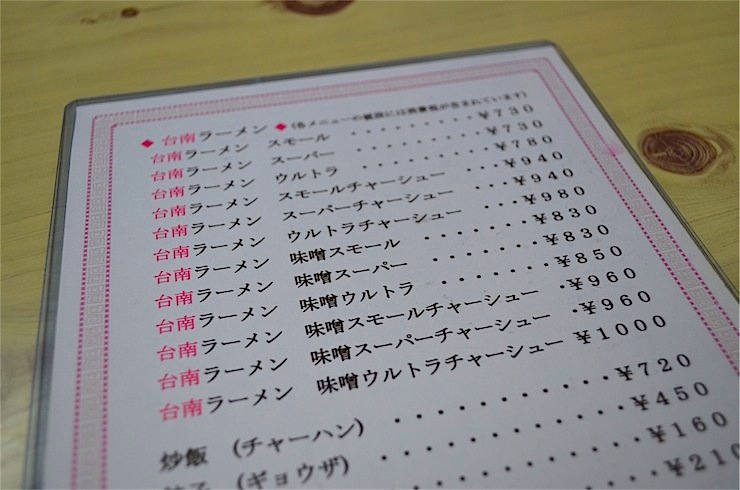 ◆ 台南ラーメン ◆(各メニューの値段には消費税が含まれています)
台南ラーメン スモール ・・・・・・・・・¥730
台南ラーメン スーパー ・・・・・・・・・¥730
台南ラーメン ウルトラ ・・・・・・・・・¥780
台南ラーメン スモールチャーシュー ・・・¥940
台南ラーメン スーパーチャーシュー ・・・¥940
台南ラーメン ウルトラチャーシュー ・・・¥980
台南ラーメン 味噌スモール ・・・・・・・¥830
台南ラーメン 味噌スーパー ・・・・・・・¥830
台南ラーメン 味噌ウルトラ ・・・・・・・¥850
台南ラーメン 味噌スモールチャーシュー ・¥960
台南ラーメン 味噌スーパーチャーシュー ・¥960
台南ラーメン 味噌ウルトラチャーシュー ¥1000
炒飯 (チャーハン) ・・・・・・・・・・¥720
餃子 (ギョウザ) ・・・・・・・・・・・¥450
・・・・・・・・・・¥160
¥210